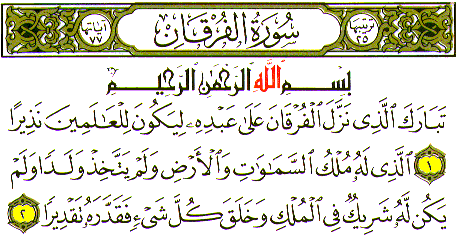 ترتيبها ٢٥ سُورَةُ الفُرْقَان آياتها ٧٧
بِسْمِ اللَّهِ الرَّحْمَٰنِ الرَّحِيمِ
تَبَارَكَ ٱلَّذِى نَزَّلَ ٱلْفُرْقَانَ عَلَىٰ عَبْدِهِۦ لِيَكُونَ لِلْعَٰلَمِينَ نَذِيرًا
١ ٱلَّذِى لَهُۥ مُلْكُ ٱلسَّمَٰوَٰتِ وَٱلْأَرْضِ وَلَمْ يَتَّخِذْ وَلَدًا وَلَمْ
يَكُن لَّهُۥ شَرِيكٌ فِى ٱلْمُلْكِ وَخَلَقَ كُلَّ شَىْءٍ فَقَدَّرَهُۥ تَقْدِيرًا ٢